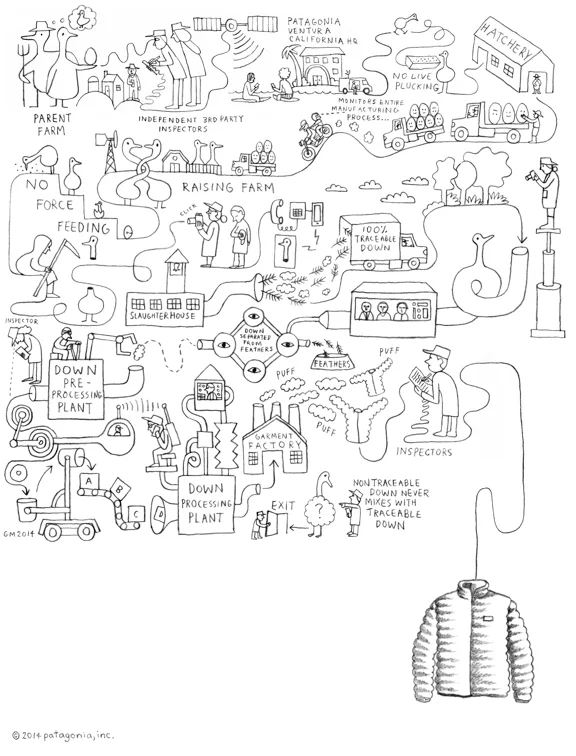 PATAGONIA
VENTURA
CALIFORNIA HQ
HATCHERY
NO LIVE
PLUCKING
PARENT
FARM
INDEPENDENT 3RD PARTY
INSPECTORS
MONITORS ENTIRE
MANUFACTURING
PROCESS...
RAISING FARM
NO
FORCE
FEEDING
CLICK
100%
TRACEABLE
DOWN
SLAUGHTERHOUSE
INSPECTOR
DOWN
SEPARATED
FROM
FEATHERS
FEATHERS
PUFF
PUFF
PUFF
DOWN
PRE-
PROCESSING
PLANT
GARMENT
FACTORY
INSPECTORS
A
B
C
D
DOWN
PROCESSING
PLANT
EXIT
?
NONTRACEABLE
DOWN NEVER
MIXES WITH
TRACEABLE
DOWN
GM2014
© 2014 patagonia, inc.